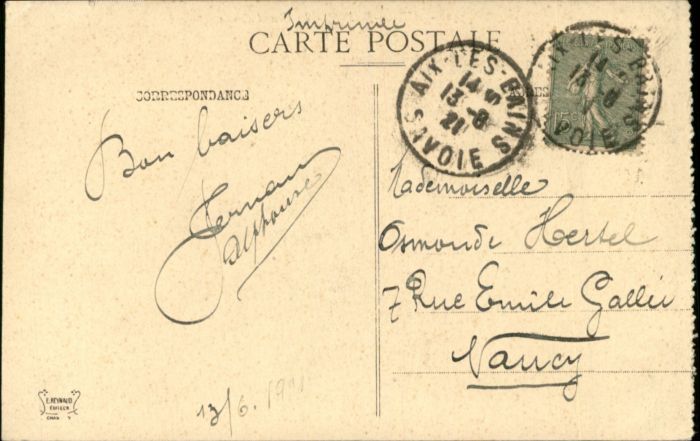 Imprimée
CARTE POSTALE
CORRESPONDANCE
AIX-LES-BAINS
14
13 -6
21
SAVOIE
AIX-LES-BAINS
14
13 -6
15
Bon baisers
Alphonse
Mademoiselle
Osmonde Hertel
7 Rue Emile Gallé
Nancy
E. REYNAUD
EDITEUR
13/6